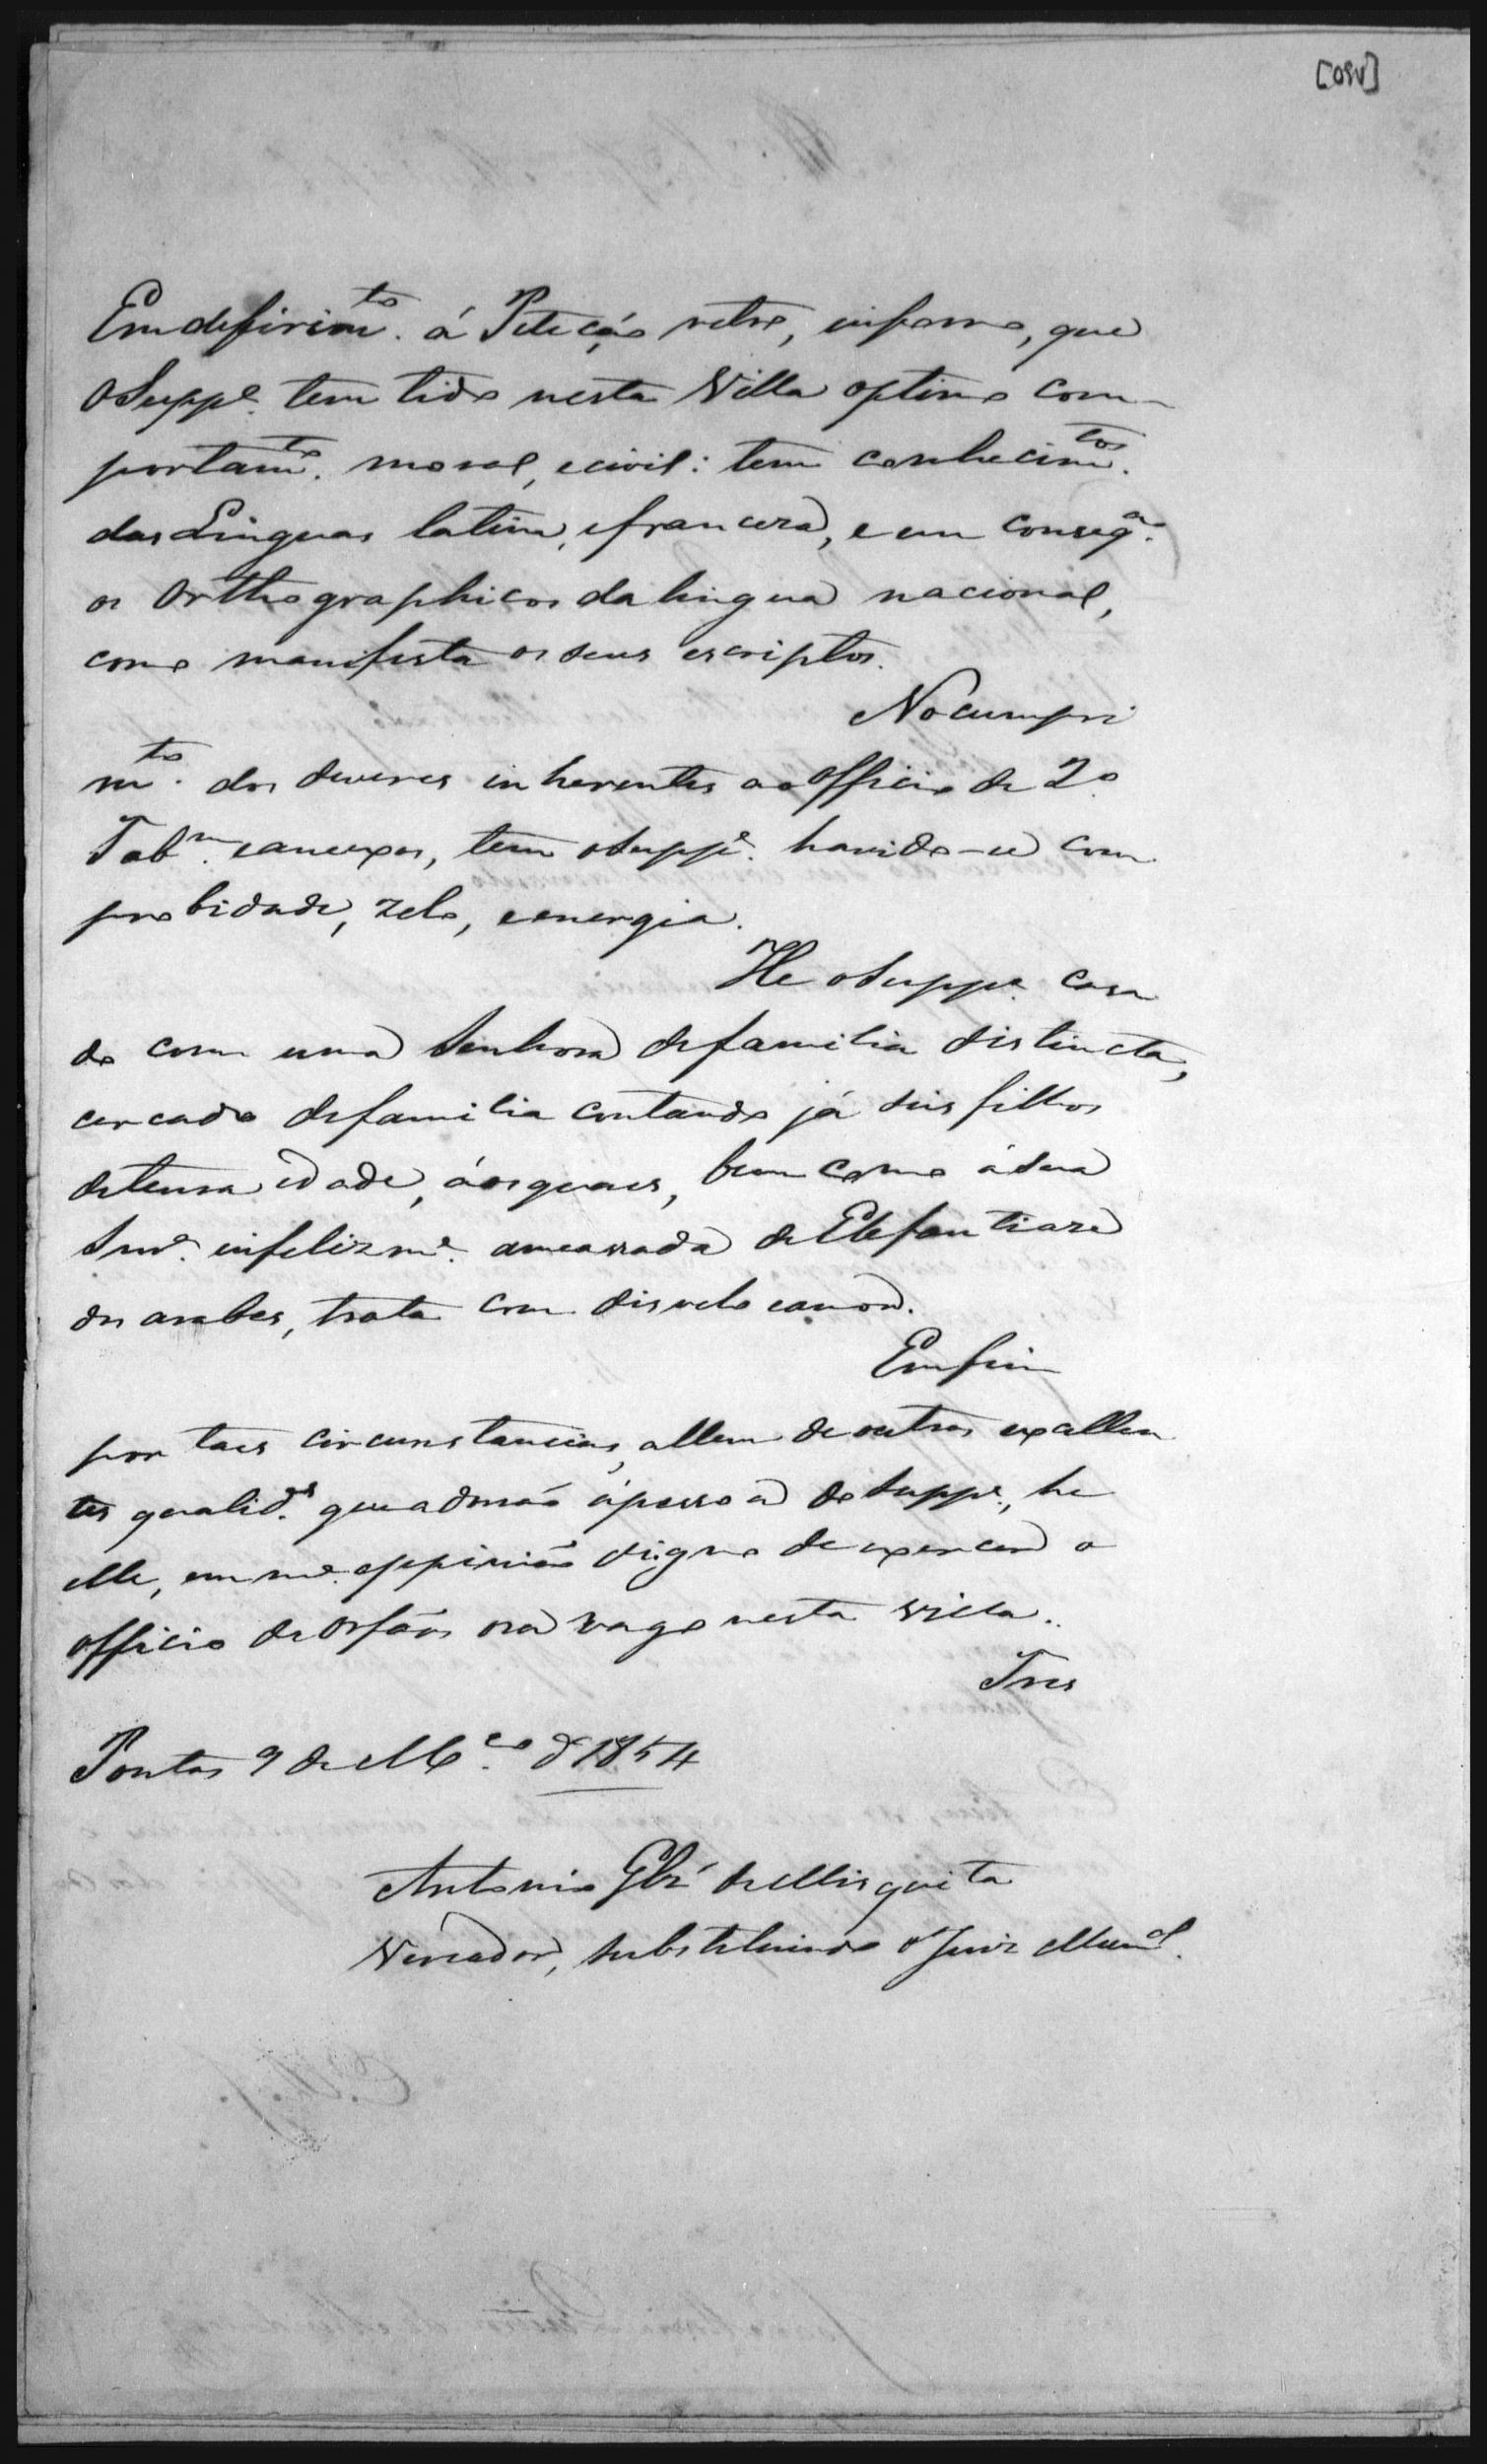 [09v]
Em defirim.to á Petição retro, informo, que
o Supp.e tem tido nesta Villa optimo com-
portam.to moral, e civil: tem conhecim.tos
das Linguas latina, e franceza, e em conseq.a
os Orthographicos da lingua nacional,
como manifesta os seus escriptos.
No cumpri
m.to dos deveres inherentes ao officio de 2.o
Tab.m e annexos, tem o Supp.e havido-se com
probidade, zelo, e energia.
He o Supp.e casa
do com uma Senhora de familia distincta,
cercado de familia contando já seis filhos
de tenra idade, áos quaes, bem como á sua
Snr.a infelizm.e ameassada de Elefantiaze
dos arabes, trata com disvelo e amor.
Em fim
por taes circunstancias, allem de outras excellen
tes qualid.es que adornão á pessoa do Supp.e, he
elle, em m.a oppinião digno de exercer o
officio de Orfãos ora vago nesta Villa.
Tres
Pontas 9 de M.ço d 1854
Antonio Glz' de Misquita
Veriador, substituindo o Juiz Mun.al